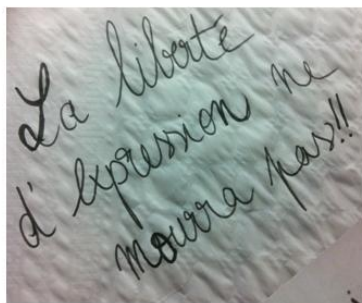 La liberté
d'expression ne
mourra pas!!